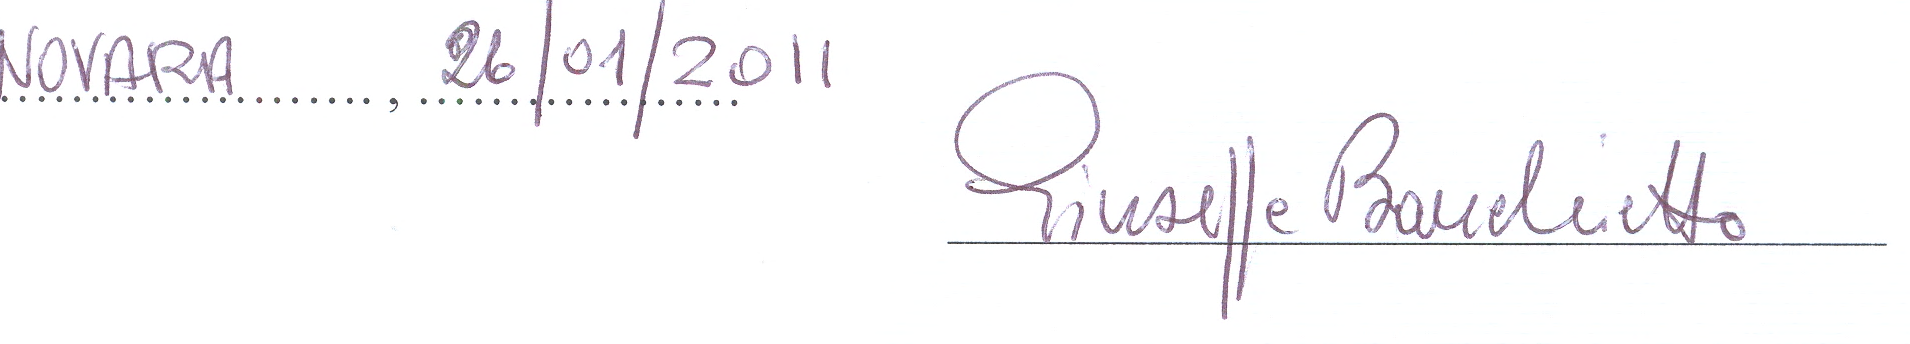 NOVARA, 26/01/2011
Giuseppe Banchietto